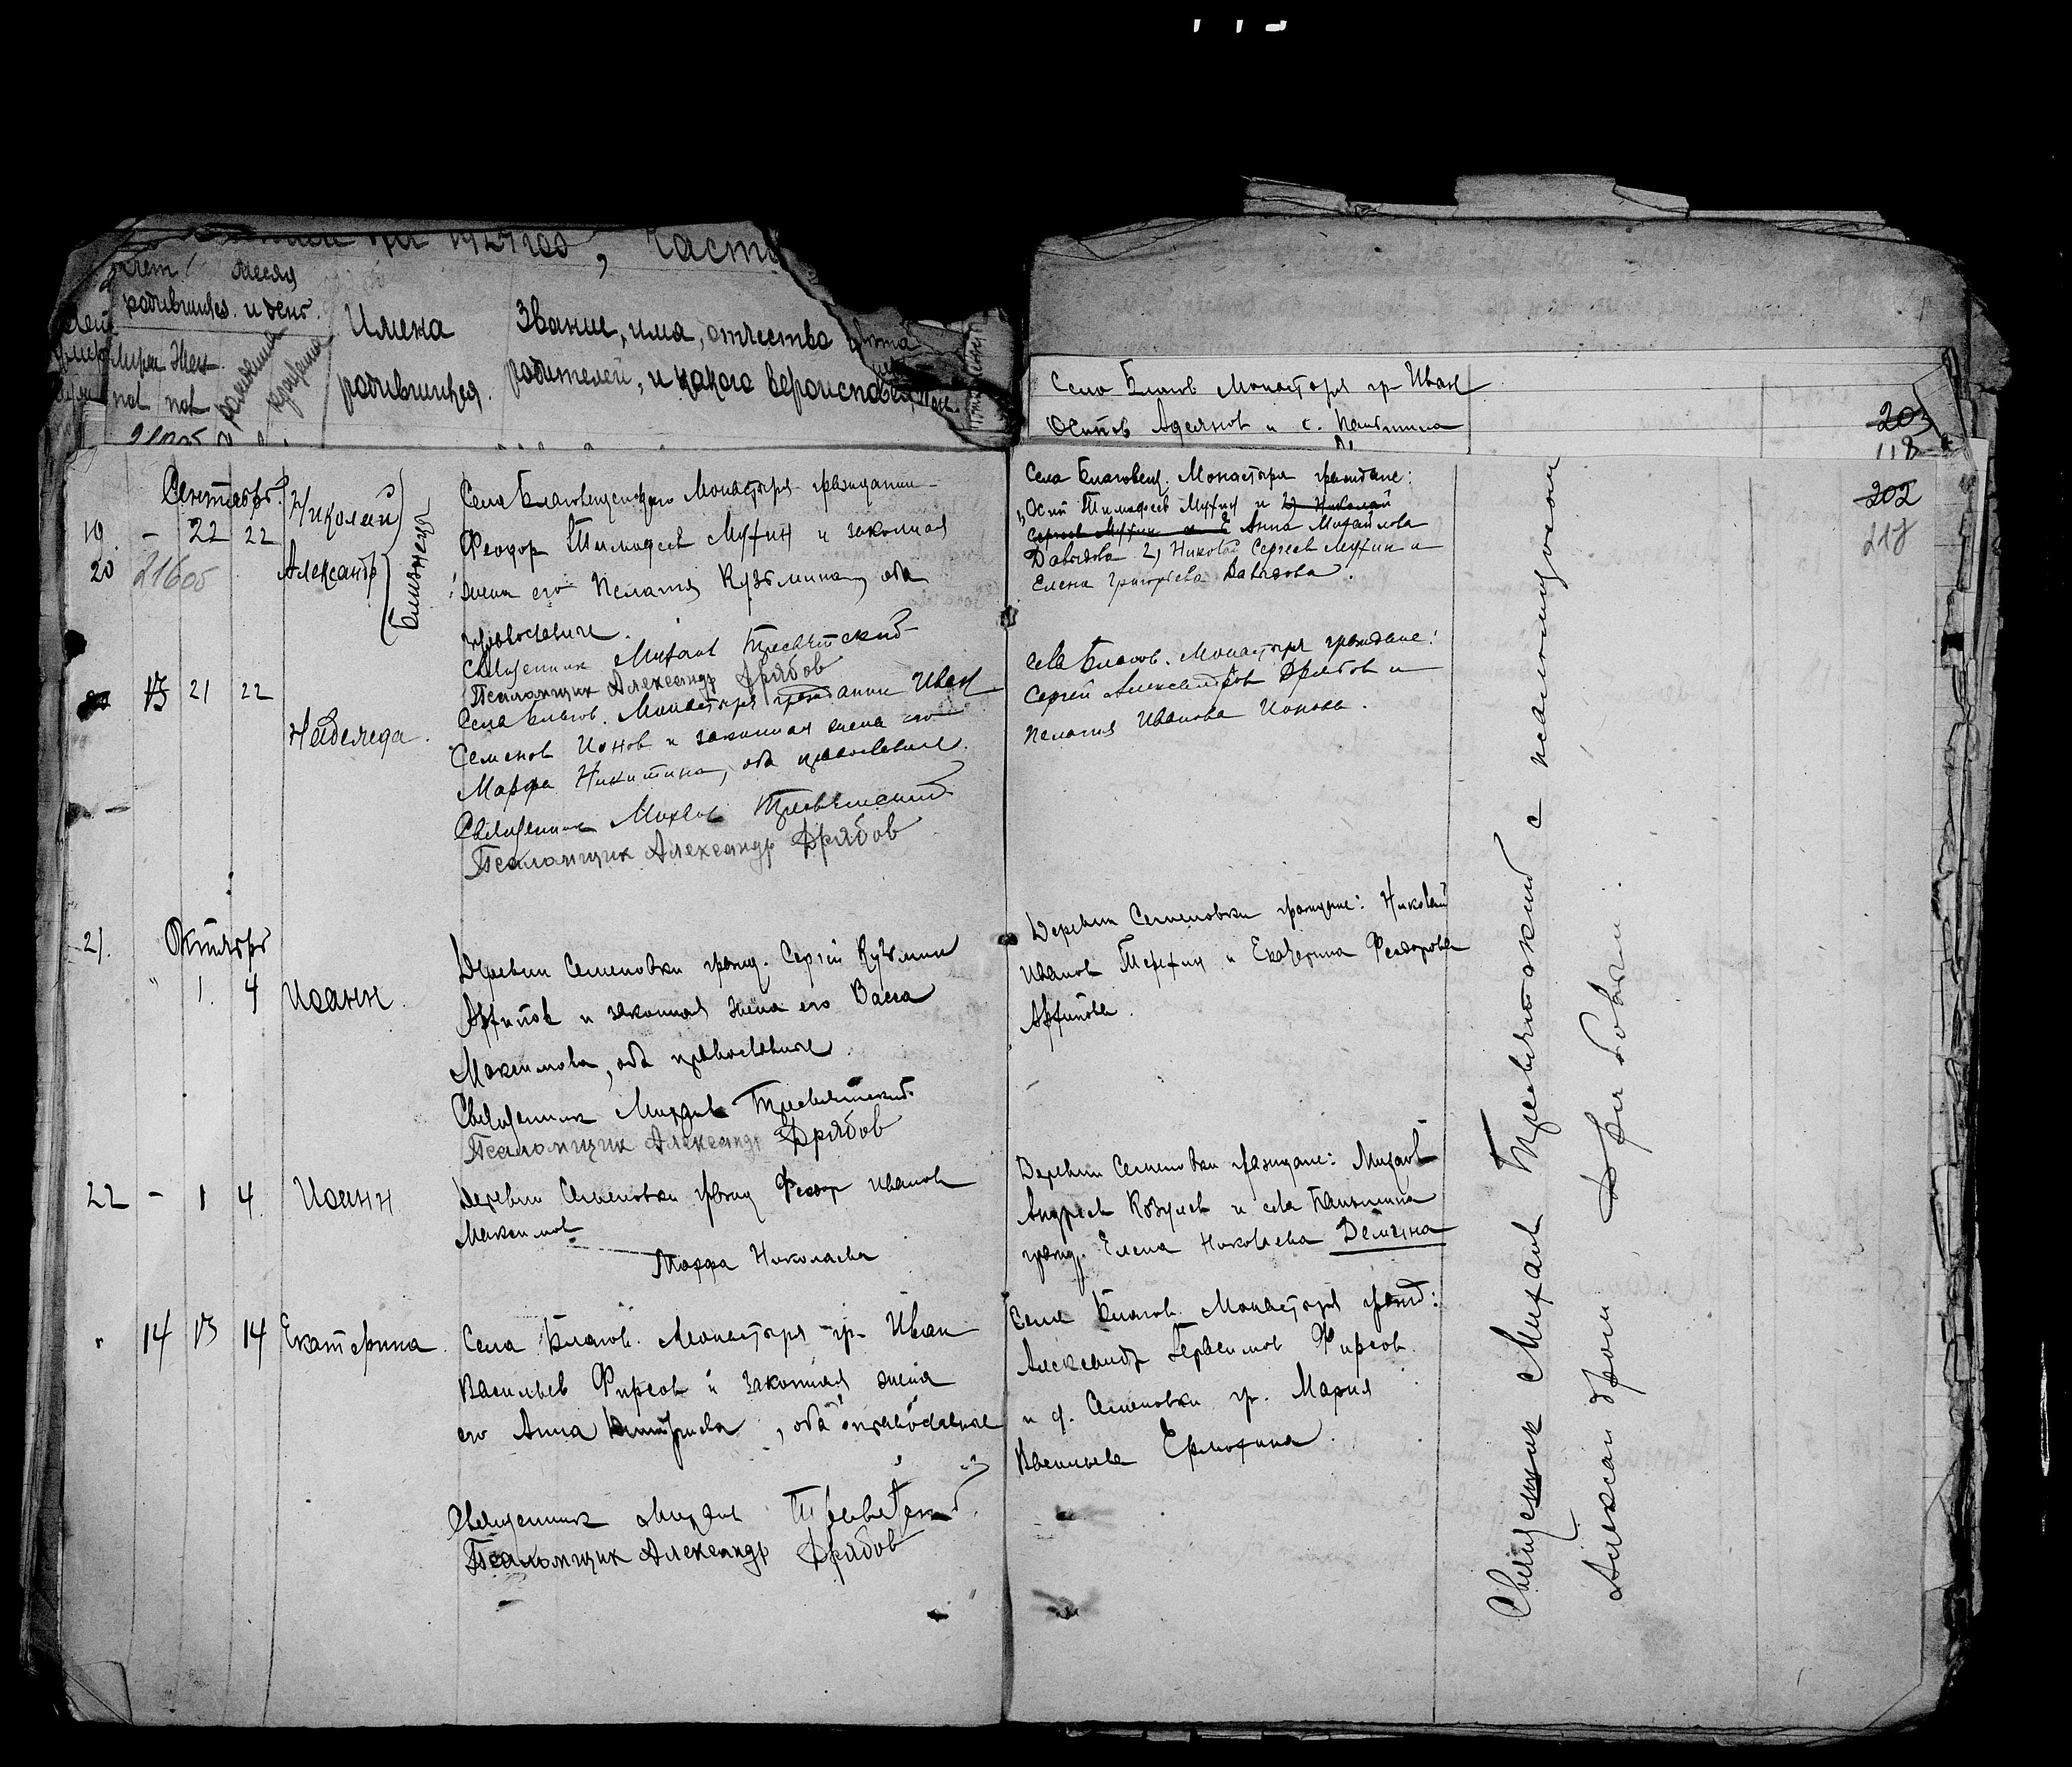 1924 год, Часть
Счет
родившихся.
Месяц
и день.
Муж Жен
пол пол
рождения
крещения
Имена
родившихся.
Звание, имя, отчество
родителей, и какого вероиспов
Село Благов Монастыря гр- Иван
Осипов Адеянов и с. Паньшина
203
118
Сентябрь
19. - 22 22
20
216об
Николай
Александр
близнецы
Села Благовещенского Монастыря граждании
Феодор Тимофеев Мухин и законная
жена его Пелагия Кузьмина, оба
православные.
Священник Михаил Тресвятский
Псаломщик Александр Дрябов
Села Благовещ. Монастыря граждане:
Осип Тимофеев Мухин и 2) Николай
Сергеев Мухин и Е Анна Михайлова
Давыдова 2) Николай Сергеев Мухин и
Елена Григорьева Давыдова.
202
217
13 21 22
Надежда.
Села Благов. Монастыря граждании Иван
Семенов Ионов и законная жена его
Марфа Никитина, оба православные.
Священник Михаил Тресвятский
Псаломщик Александр Дрябов
Села Благов. Монастыря граждане:
Сергей Александров Дрябов и
Пелагия Иванова Ионова.
21.
Октябрь
" 1. 4 Иоанн.
Деревни Семеновки гражд. Сергей Кузьмин
Архипов и законная жена его Васса
Максимова, оба православные.
Священник Михаил Тресвятский.
Псаломщик Александр Дрябов
Деревни Семеновки граждане: Николай
Иванов Терехин и Екатерина Феодорова
Архипова.
22 - 1 4. Иоанн
Деревни Семеновки гражд Феодор Иванов
Максимов
Марфа Николаева
Деревни Семеновки граждане: Михаил
Андреев Козулев и села Паньшина
гражд. Елена Николаева Демина
" 14 13 14 Екатерина.
Села Благов. Монастыря гр- Иван
Васильев Фирсов и законная жена
его Анна Димитриева, оба православные
Священник Михаил Тресвятский.
Псаломщик Александр Дрябов
Села Благов. Монастыря гражд:
Александр Герасимов Фирсов.
и д. Семеновки гр. Мария
Васильева Ермохина.
Священник Михаил Тресвятский с псаломщиком
Александром Дрябовым.